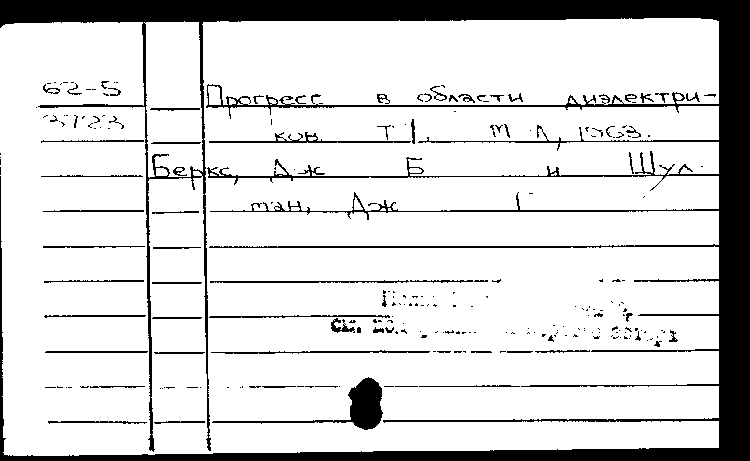 62-5
Прогресс в области диэлектри-
3723
ков. Т 1. М Л, 1963.
Беркс, Дж Б и Шул
ман, Дж Г
см. автора